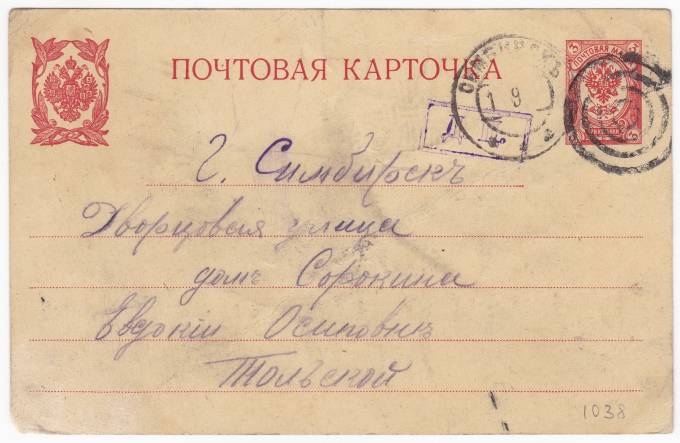 ПОЧТОВАЯ КАРТОЧКА
3 ПОЧТОВАЯ МАРКА 3
г. Симбирскъ
Дворцовая улица
домъ Сорокина
Евдокіи Осиповнѣ
Тольской
1038